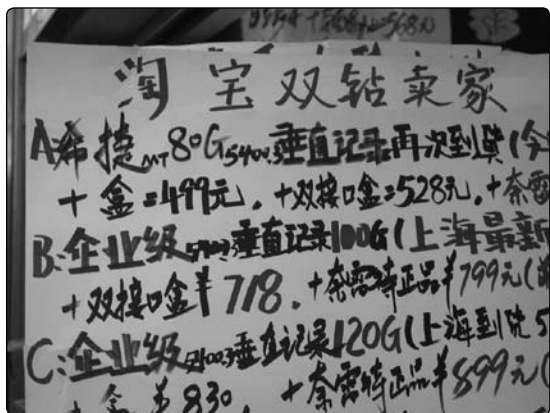 淘宝双钻卖家
A希捷MT80G5400.3垂直记录再次到货(今
+盒=499元.+双接口盒=528元.+奈雷
B:企业级5400.3垂直记录100G(上海最新
+双接口盒¥718.+奈雷特正品¥799元(
C:企业级5400.3垂直记录120G(上海到货5
+盒¥830. +奈雷特正品¥899元(